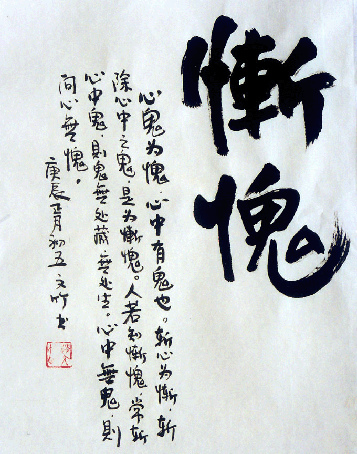 慚愧
心鬼为愧，心中有鬼也。斬心为慚，斬
除心中之鬼，是为慚愧。人若知慚愧，常斬
心中鬼，則鬼無处藏，無处生。心中無鬼，則
问心無愧。
庚辰正月初五文竹书